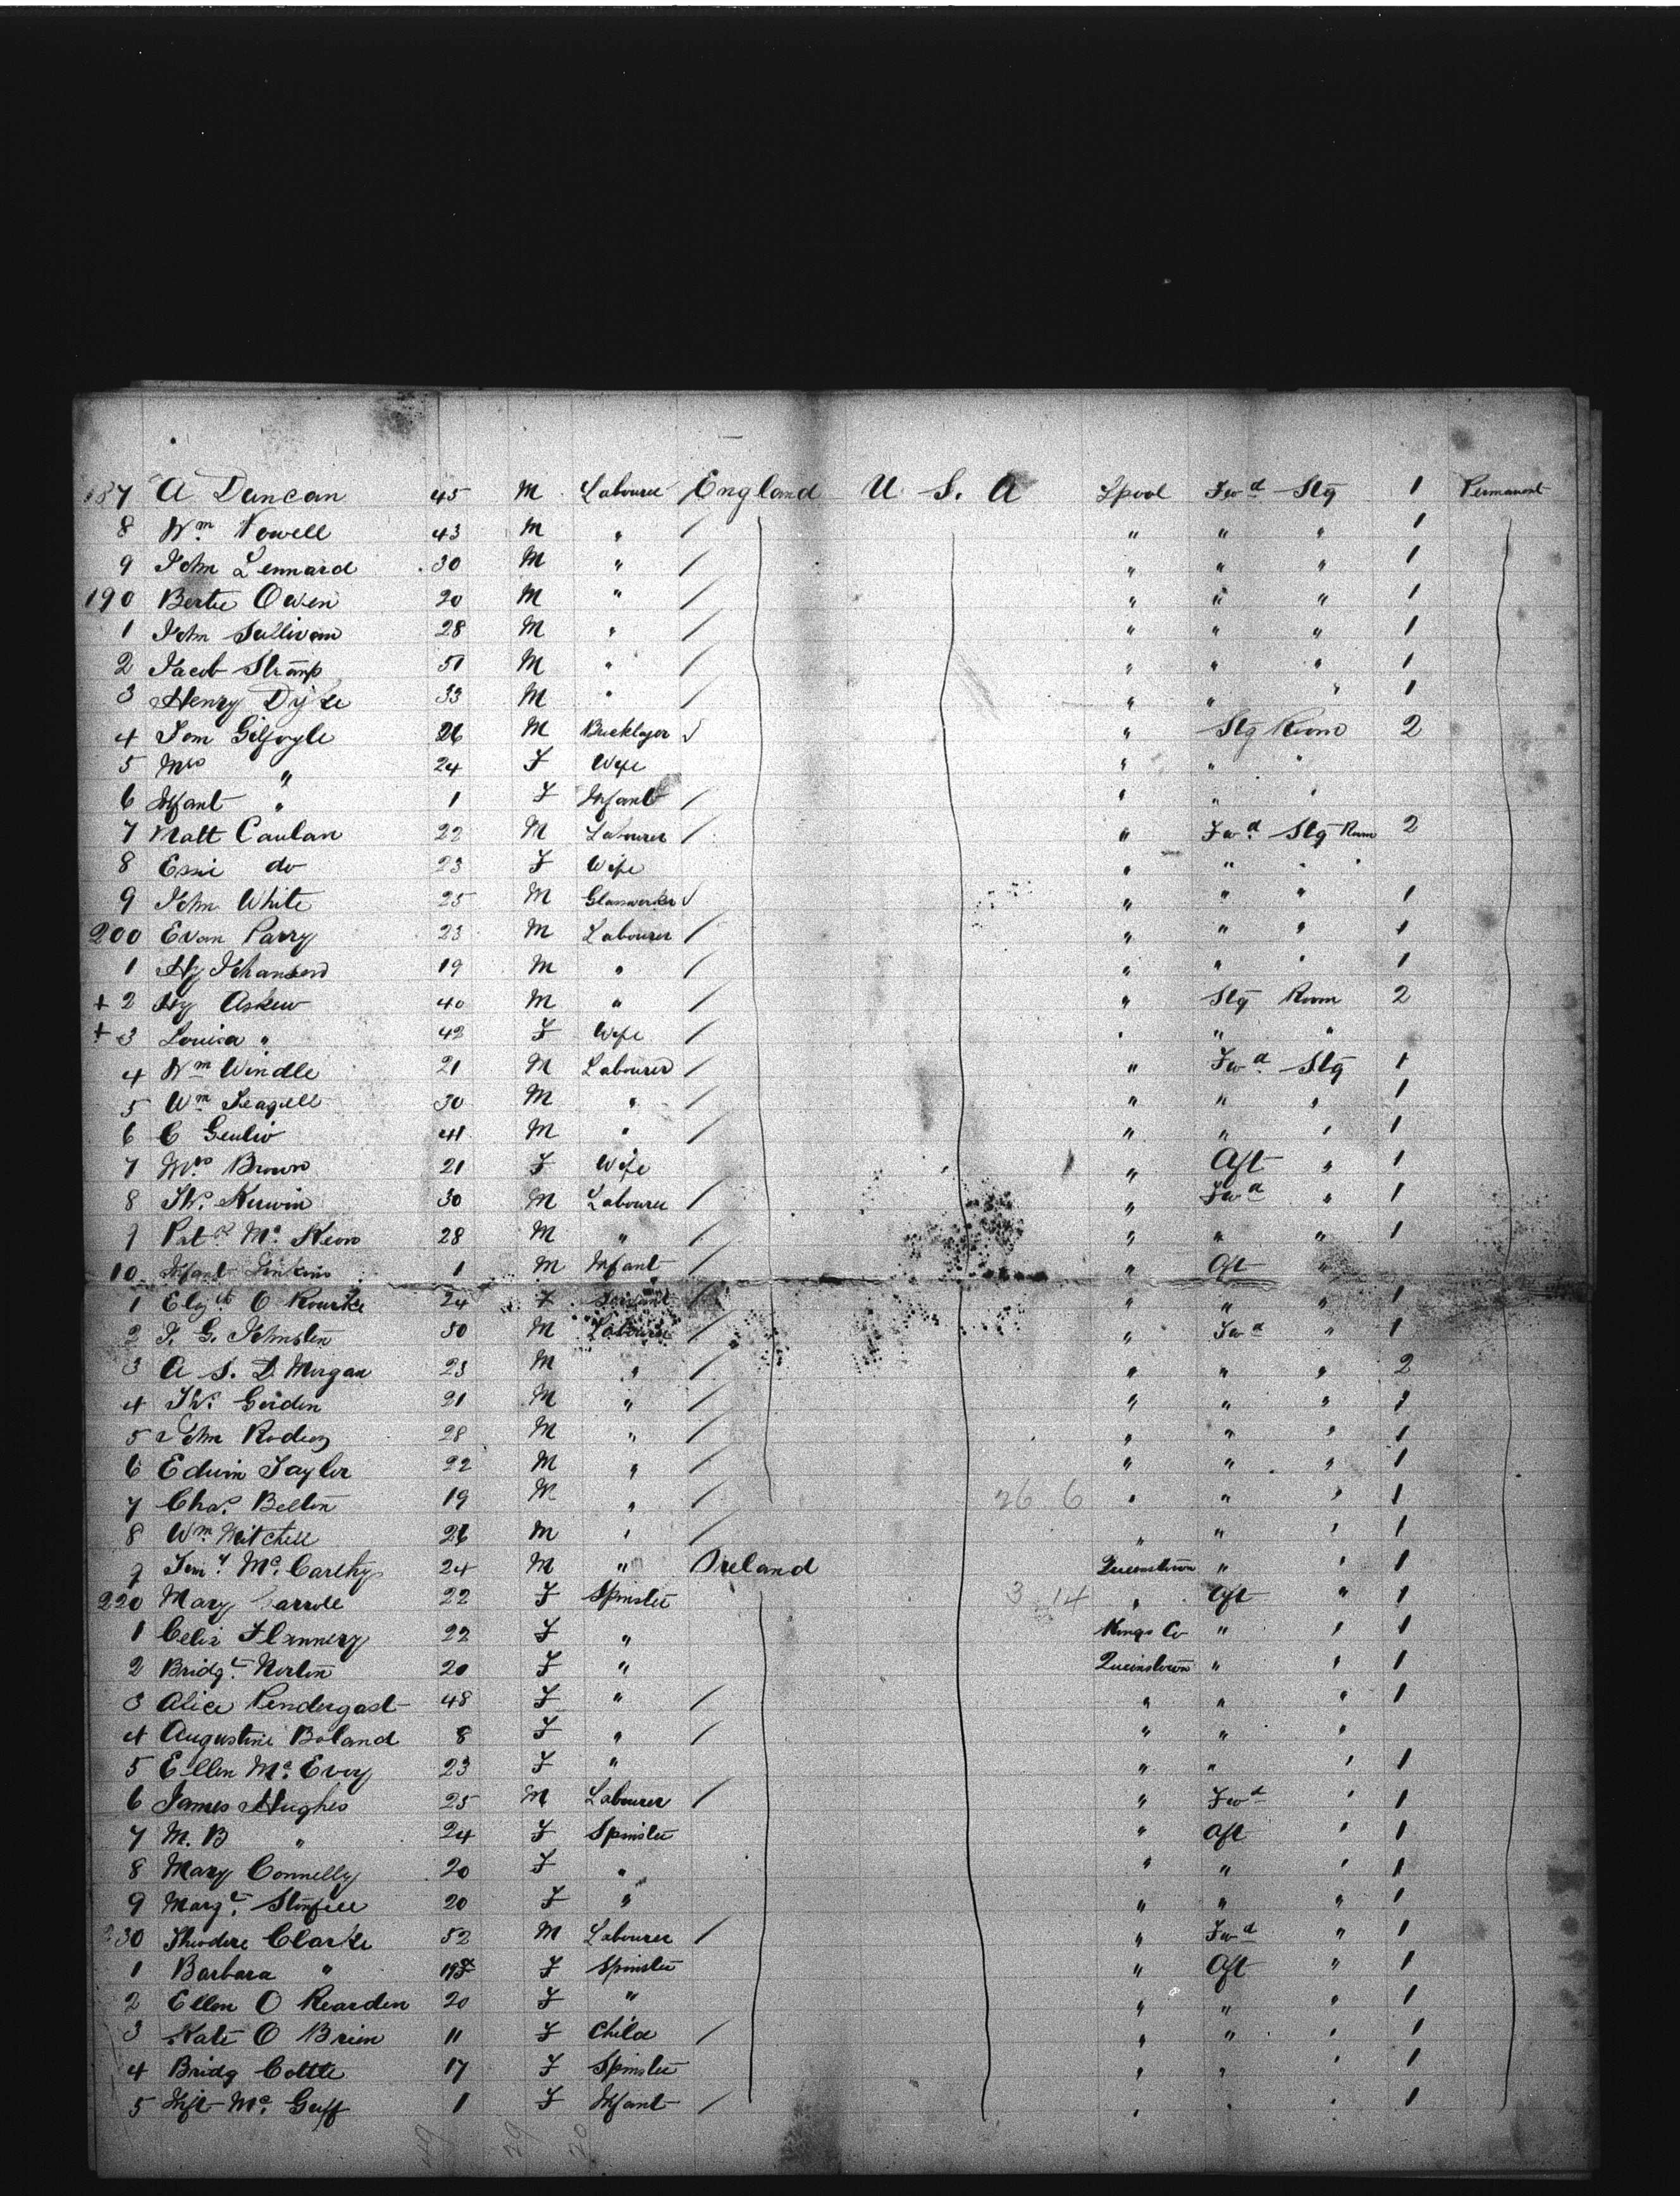 187 A Duncan 45 M Labourer / England U. S. A Lpool Fwd Stg 1 Permanent
8 Wm Powell 43 M " / " " " 1
9 John Lennard 30 M " / " " " 1
190 Bertie Owen 20 M " / " " " 1
1 John Sullivan 28 M " / " " " 1
2 Jacob Stramp 51 M " / " " " 1
3 Henry Dyke 33 M " / " " " 1
4 Tom Gilfoyle 26 M Bricklayer / " Stg Room 2
5 Mrs " 24 F Wife " " "
6 Infant " 1 F Infant / " " "
7 Matt Caulan 22 M Labourer / " Fwd Stg Room 2
8 Essie do 23 F Wife " " " "
9 John White 25 M Glassworker / " " " 1
200 Evan Parry 23 M Labourer / " " " 1
1 Hy Johanson 19 M " / " " " 1
+ 2 Hy Askew 40 M " / " Stg Room 2
+ 3 Louisa " 42 F Wife / " " "
4 Wm Windle 21 M Labourer / " Fwd Stg 1
5 Wm Seagell 30 M " / " " " 1
6 C Geulio 41 M " / " " " 1
7 Mrs Brown 21 F Wife " Aft " 1
8 Thos Kerwin 30 M Labourer / " Fwd " 1
9 Patk Mc Keon 28 M " / " " " 1
10 Infant Jenkins 1 M Infant / " Aft "
1 Elizth O Rourke 24 F Servant / " " " 1
2 J. G. Johnston 50 M Labourer / " Fwd " 1
3 A S. D. Morgan 23 M " / " " " 2
4 Thos Gordon 21 M " / " " " 1
5 John 28 M " / " " " 1
6 Edwin Taylor 22 M " / " " " 1
7 Chas. Belton 19 M " / 26 6 " " " 1
8 Wm Mitchell 26 M " / " " " 1
9 Timy Mc Carthy 24 M " Ireland Queenstown " " 1
220 Mary Carroll 22 F Spinster 3 14 " Aft " 1
1 Celia Flannery 22 F " Kings Co " " 1
2 Bridgt Norton 20 F " Queenstown " " 1
3 Alice Pendergast 48 F " / " " " 1
4 Augustine Boland 8 F " / " " "
5 Ellen Mc Evoy 23 F " " " " 1
6 James Hughes 25 M Labourer / " Fwd " 1
7 M. B " 24 F Spinster " Aft " 1
8 Mary Connelly 20 F " " " " 1
9 Margt 20 F " " " " 1
230 Theodore Clarke 52 M Labourer / " Fwd " 1
1 Barbara " 19 F Spinster " Aft " 1
2 Ellen O Rearden 20 F " " " " 1
3 Kate O Brien 11 F Child / " " " 1
4 Bridg Cottle 17 F Spinster " " " 1
5 Inft Mc Guff 1 F Infant / " " " 1
49 29 20